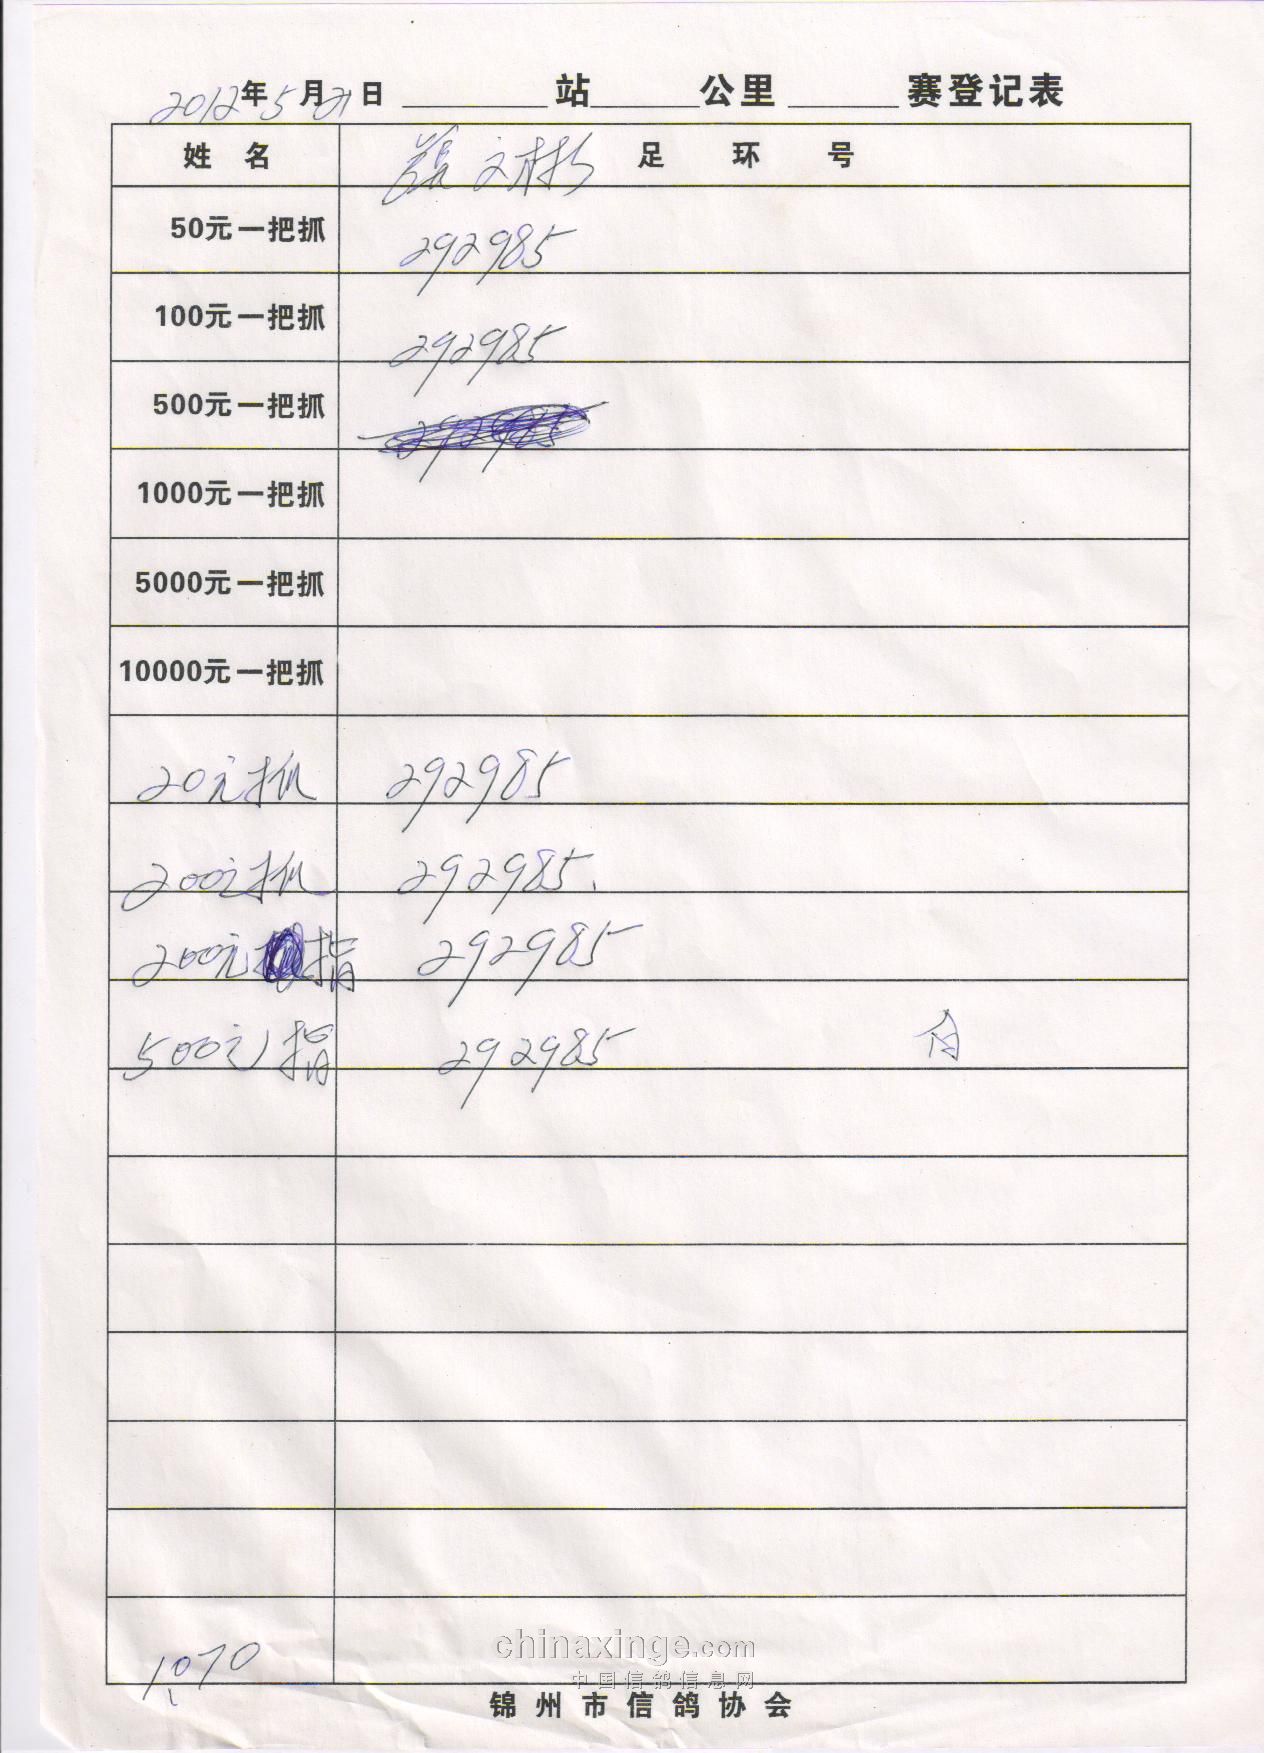 2012年5月21日 站 公里 赛登记表
姓 名 文彬 足 环 号
50元一把抓 292985
100元一把抓 292985
500元一把抓 292985
1000元一把抓
5000元一把抓
10000元一把抓
20元抓 292985
200元抓 292985.
200元指 292985
500元指 292985
1070
chinaxinge.com
中国信鸽信息网
锦州市信鸽协会